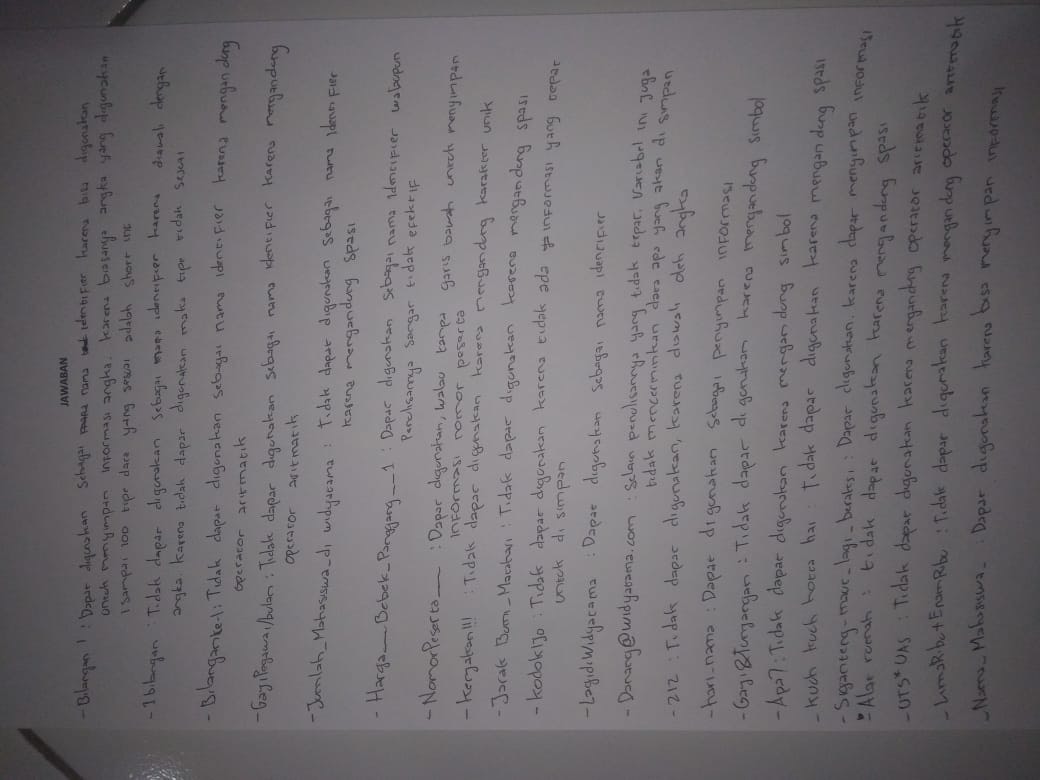 JAWABAN
- Bilangan 1 : Dapat digunakan Sebagai nama identifier karena bisa digunakan
untuk menyimpan informasi angka. karena biasanya angka yang digunakan
1 sampai 100 tipe data yang sesuai adalah short int
- 1bilangan : Tidak dapat digunakan sebagai nama identifier karena diawali dengan
angka karena tidak dapat digunakan maka tipe tidak sesuai
- Bilanganke-1 : Tidak dapat digunakan sebagai nama Identifier karena mengandung
operator aritmatik
- GajiPegawai/bulan : Tidak dapat digunakan sebagai nama identifier karena mengandung
operator aritmatik
- Jumlah_Mahasiswa_di widyatama : Tidak dapat digunakan sebagai nama Identifier
karena mengandung spasi
- Harga__Bebek_Panggang__1 : Dapat digunakan sebagai nama Identifier walaupun
Penulisannya sangat tidak efektif
- NomorPeserta___ : Dapat digunakan, walau tanpa garis bawah untuk menyimpan
informasi nomor peserta
- Kerjakan!!! : Tidak dapat digunakan karena mengandung karakter unik
- Jarak Bumi_Matahari : Tidak dapat digunakan karena mengandung spasi
- KodoK1Jo : Tidak dapat digunakan karena tidak ada informasi yang tepat
untuk di simpan
- LagidiWidyatama : Dapat digunakan sebagai nama identifier
- Danang@widyatama.com : Selain penulisannya yang tidak tepat. Variabel ini juga
tidak mencerminkan data apa yang akan di simpan
- 212 : Tidak dapat digunakan, karena diawali oleh angka
- hari_nama : Dapat digunakan sebagai penyimpan informasi
- Gaji&Tunjangan : Tidak dapat digunakan karena mengandung simbol
- Apa? : Tidak dapat digunakan karena mengandung simbol
- Kuch kuch hotta hai : Tidak dapat digunakan karena mengandung spasi
- Siganteng_maut_lagi_beraksi : Dapat digunakan. karena dapat menyimpan informasi
- Alat rumah : tidak dapat digunakan karena mengandung spasi
- UTS*UAS : Tidak dapat digunakan karena mengandung operator aritmatik
- LimaRibu+EnamRibu : Tidak dapat digunakan karena mengandung operator aritmatik
- Nama_Mahasiswa_ : Dapat digunakan karena bisa menyimpan informasi